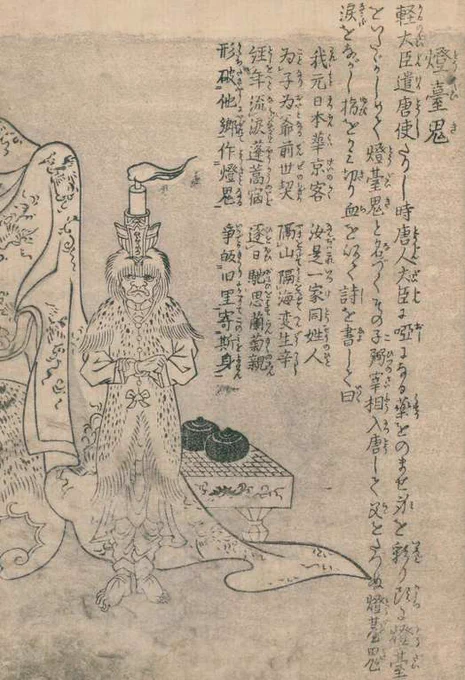 燈臺鬼
軽大臣遣唐使たりし時唐人大臣に唖になる薬をのませ身を彩り頭に燈臺
といたゞかしめて燈臺鬼と名づくその子弼宰相入唐して父をたづぬ燈臺鬼
涙をながし指をかみ切り血を以て詩を書して曰
我元日本華京客 汝是一家同姓人
為子為爺前世契 隔山隔海変生辛
経年流涙蓬蒿宿 逐日馳思蘭菊親
形破他郷作燈鬼 争皈旧里寄斯身